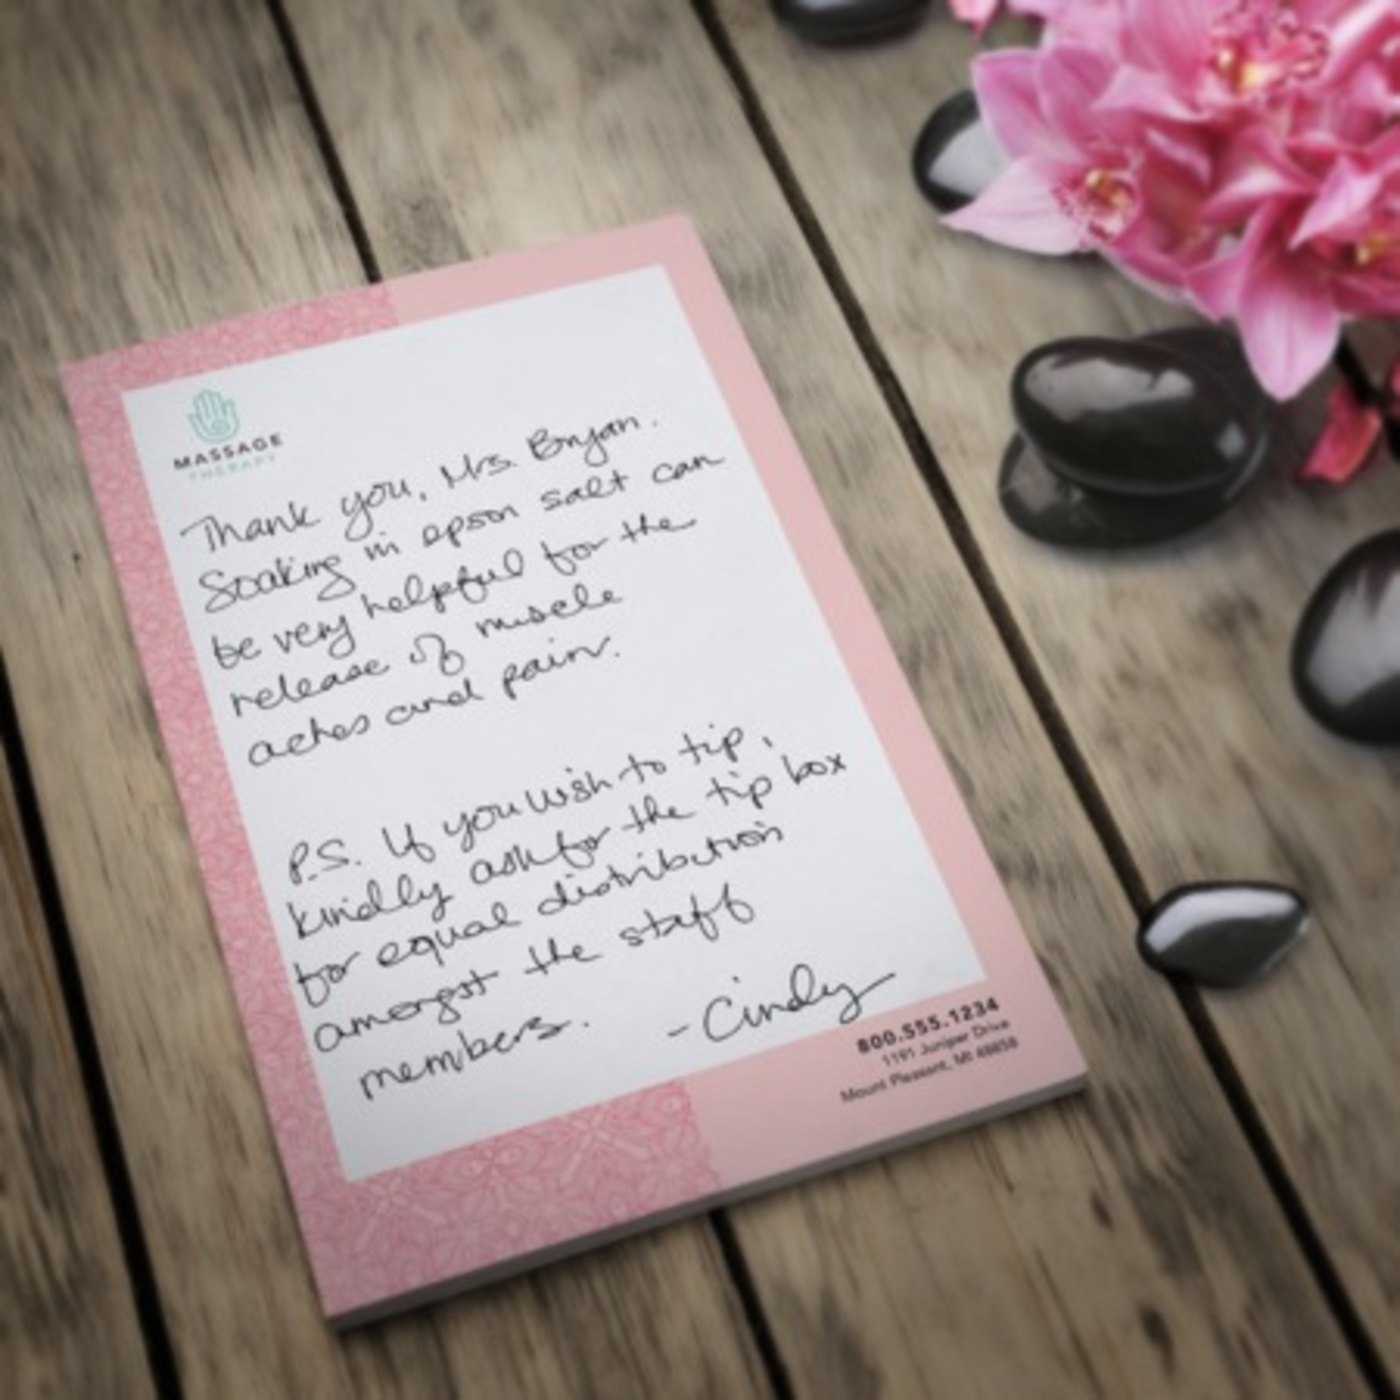 MASSAGE
THERAPY
Thank you, Mrs. Bryan.
Soaking in epson salt can
be very helpful for the
release of muscle
aches and pain.
P.S. If you wish to tip,
kindly ask for the tip box
for equal distribution
amongst the staff
members. -Cindy
800.555.1234
1191 Juniper Drive
Mount Pleasant, MI 48858